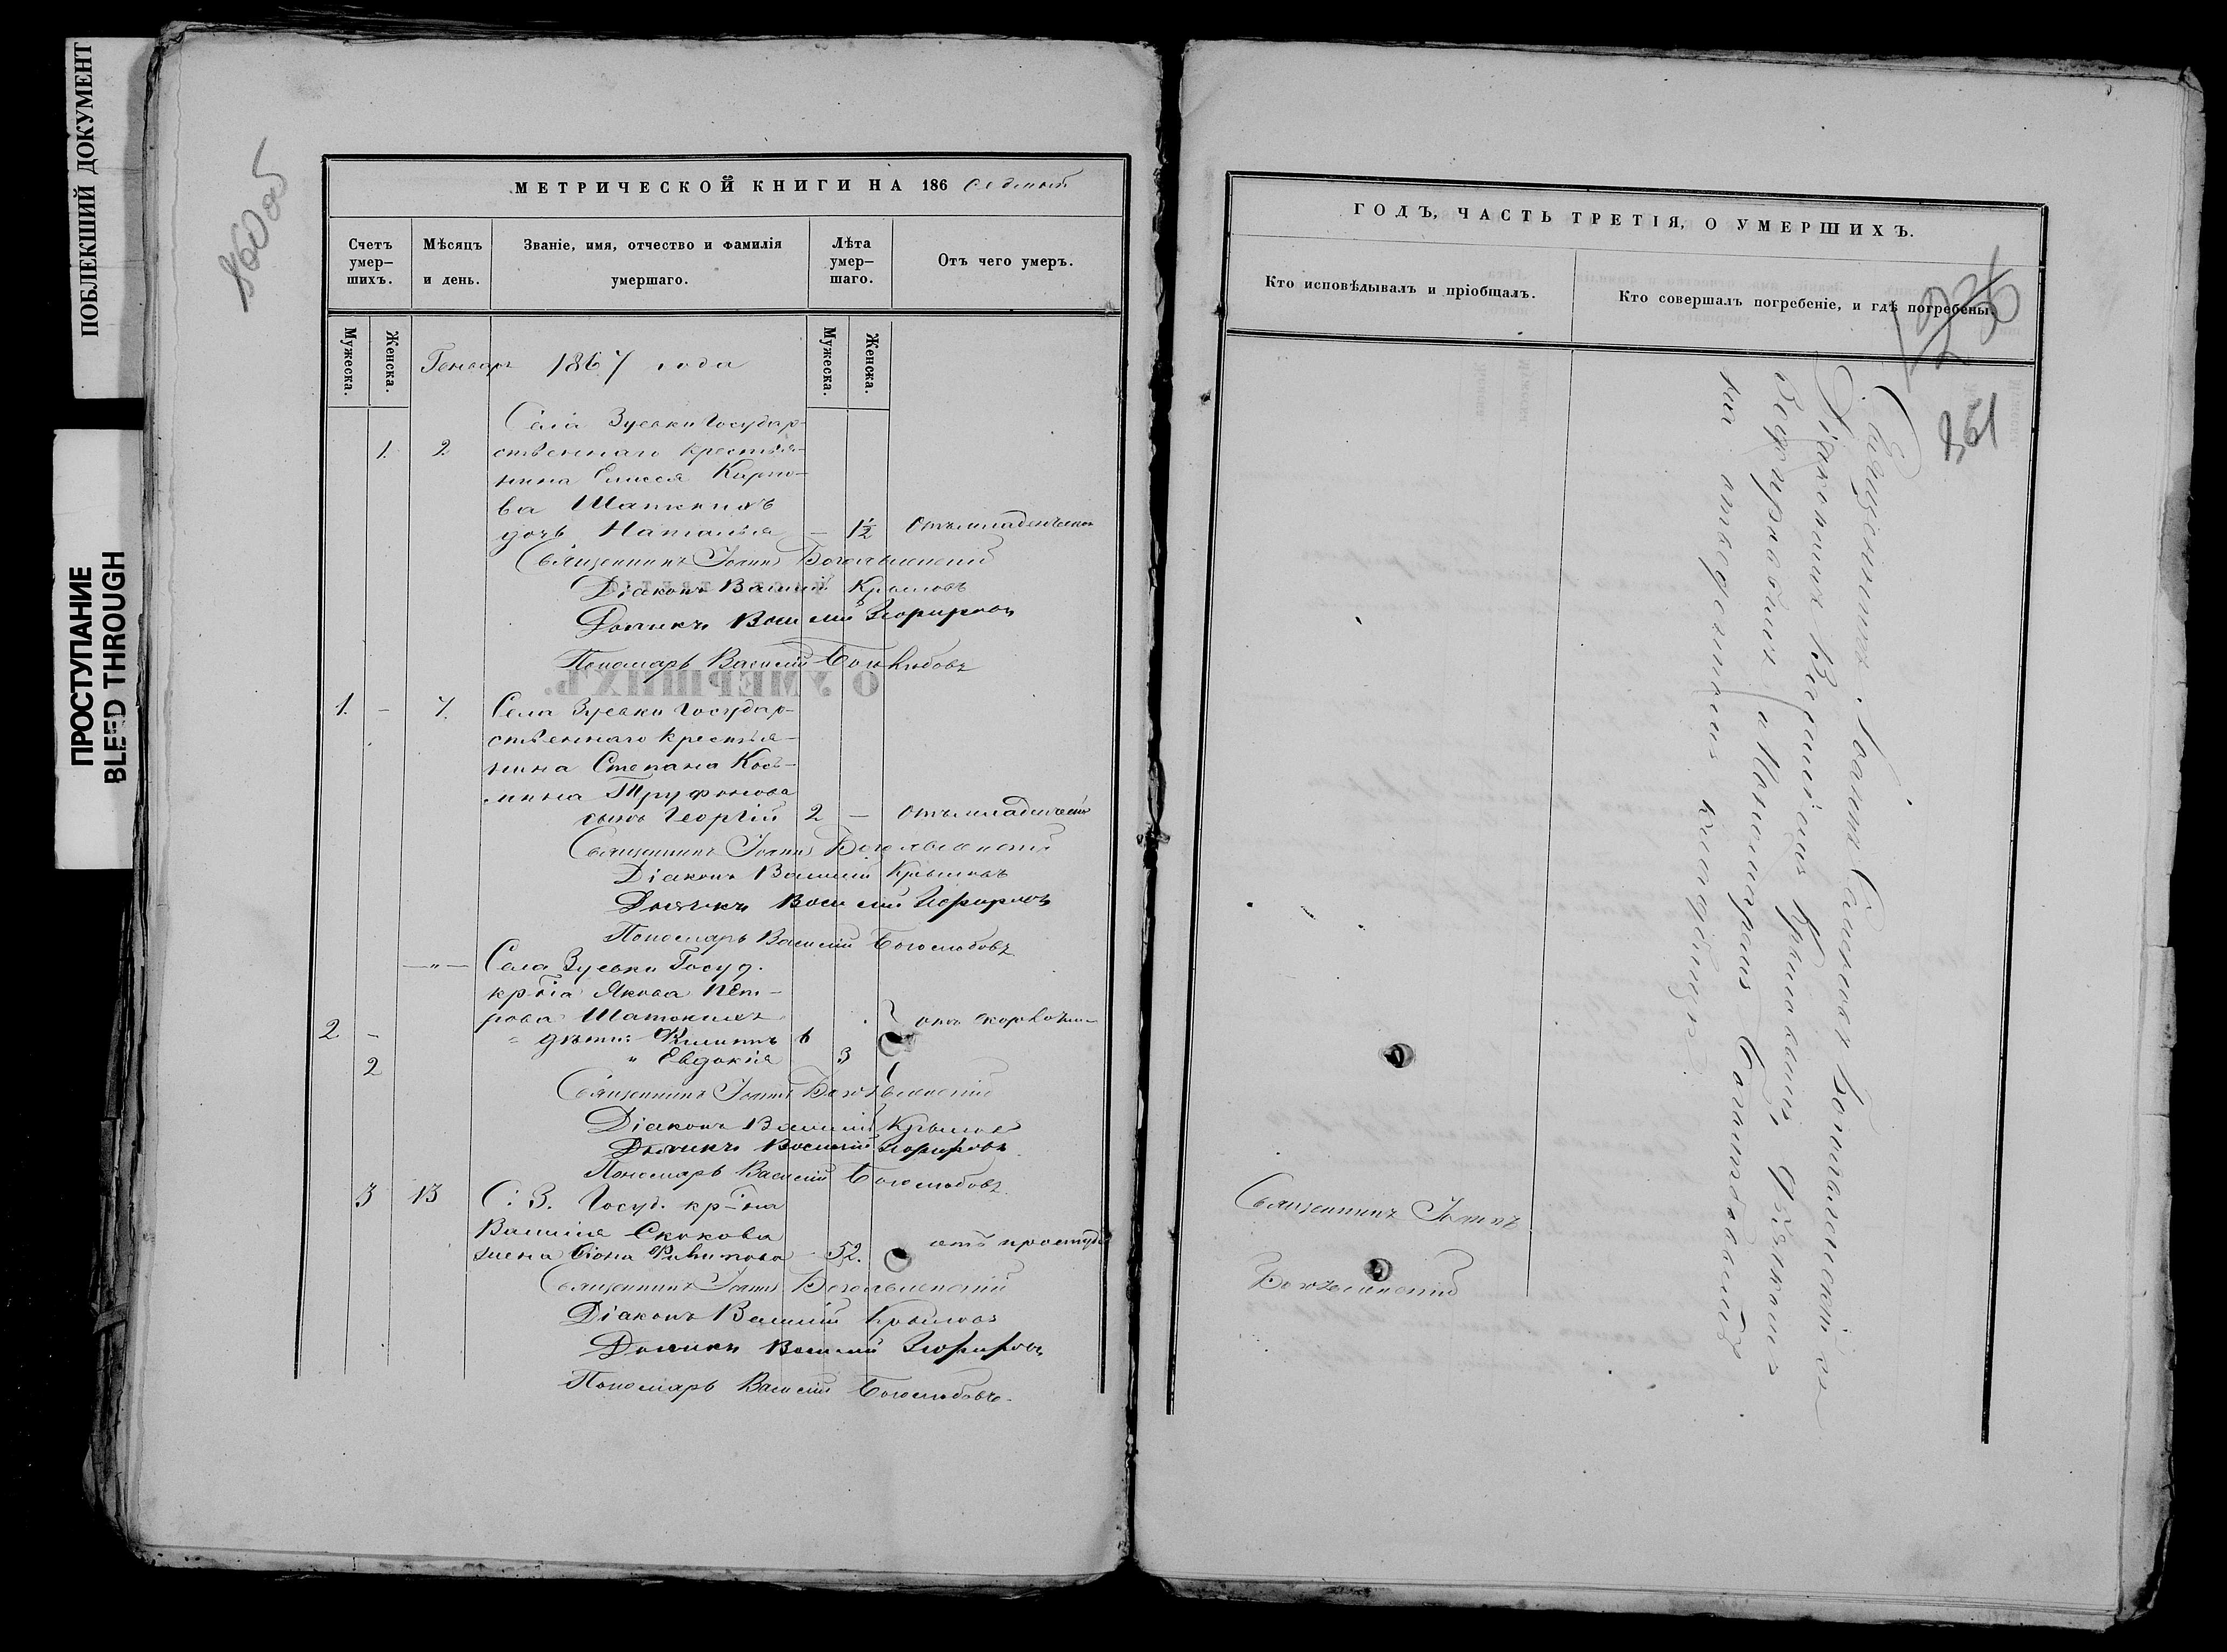 ПОБЛЕКШИЙ ДОКУМЕНТ
ПРОСТУПАНИЕ
BLEED THROUGH
860 об
МЕТРИЧЕСКОЙ КНИГИ НА 186 седьмый
Счетъ умер–шихъ.
Мѣсяцъ и день.
Званіе, имя, отчество и фамилія умершаго.
Лѣта умер–шаго.
Отъ чего умеръ.
Мужеска.
Женска.
Мужеска.
Женска.
Генварь 1867 года
Села Зуевки Государ-
1. 2 ственнаго крестья-
нина Елисея Карпо-
ва Шаткина
дочь Наталья — 1½ Отъ младенческой
Священникъ Іоаннъ Богоявленскій
Діаконъ Василій Крыловъ
Дьячекъ Василій
Пономарь Василій Боголюбовъ
О УМЕРШИХЪ.
1. – 7. Села Зуевки Государ-
ственнаго крестья-
нина Степана Кось-
мина Труфонова
сынъ Георгій 2 — Отъ младенческой
Священникъ Іоаннъ Богоявленскій
Діаконъ Василій Крыловъ
Дьячекъ Василій
Пономарь Василій Боголюбовъ
—„— Села Зуевки Госуд.
кр-на Якова Пет-
рова Шаткина
2 – дѣти: Филиппъ 6
2 „ Евдокія 3
Священникъ Іоаннъ Богоявленскій
Діаконъ Василій Крыловъ
Дьячекъ Василій
Пономарь Василій Боголюбовъ
3 13 С. З. Госуд. кр-на
Василія Скокова
жена Филипова 52. отъ простуды
Священникъ Іоаннъ Богоявленскій
Діаконъ Василій Крыловъ
Дьячекъ Василій
Пономарь Василій Боголюбовъ.
ГОДЪ, ЧАСТЬ ТРЕТІЯ, О УМЕРШИХЪ.
Кто исповѣдывалъ и пріобщалъ.
Кто совершалъ погребеніе, и гдѣ погребены.
861
Священникъ Іоаннъ Богоявленскій съ
Діакономъ Василіемъ Крыловымъ, Дьячкомъ
и Пономаремъ Боголюбовымъ
на отведенномъ кладбищѣ
Священникъ Іоаннъ
Богоявленскій